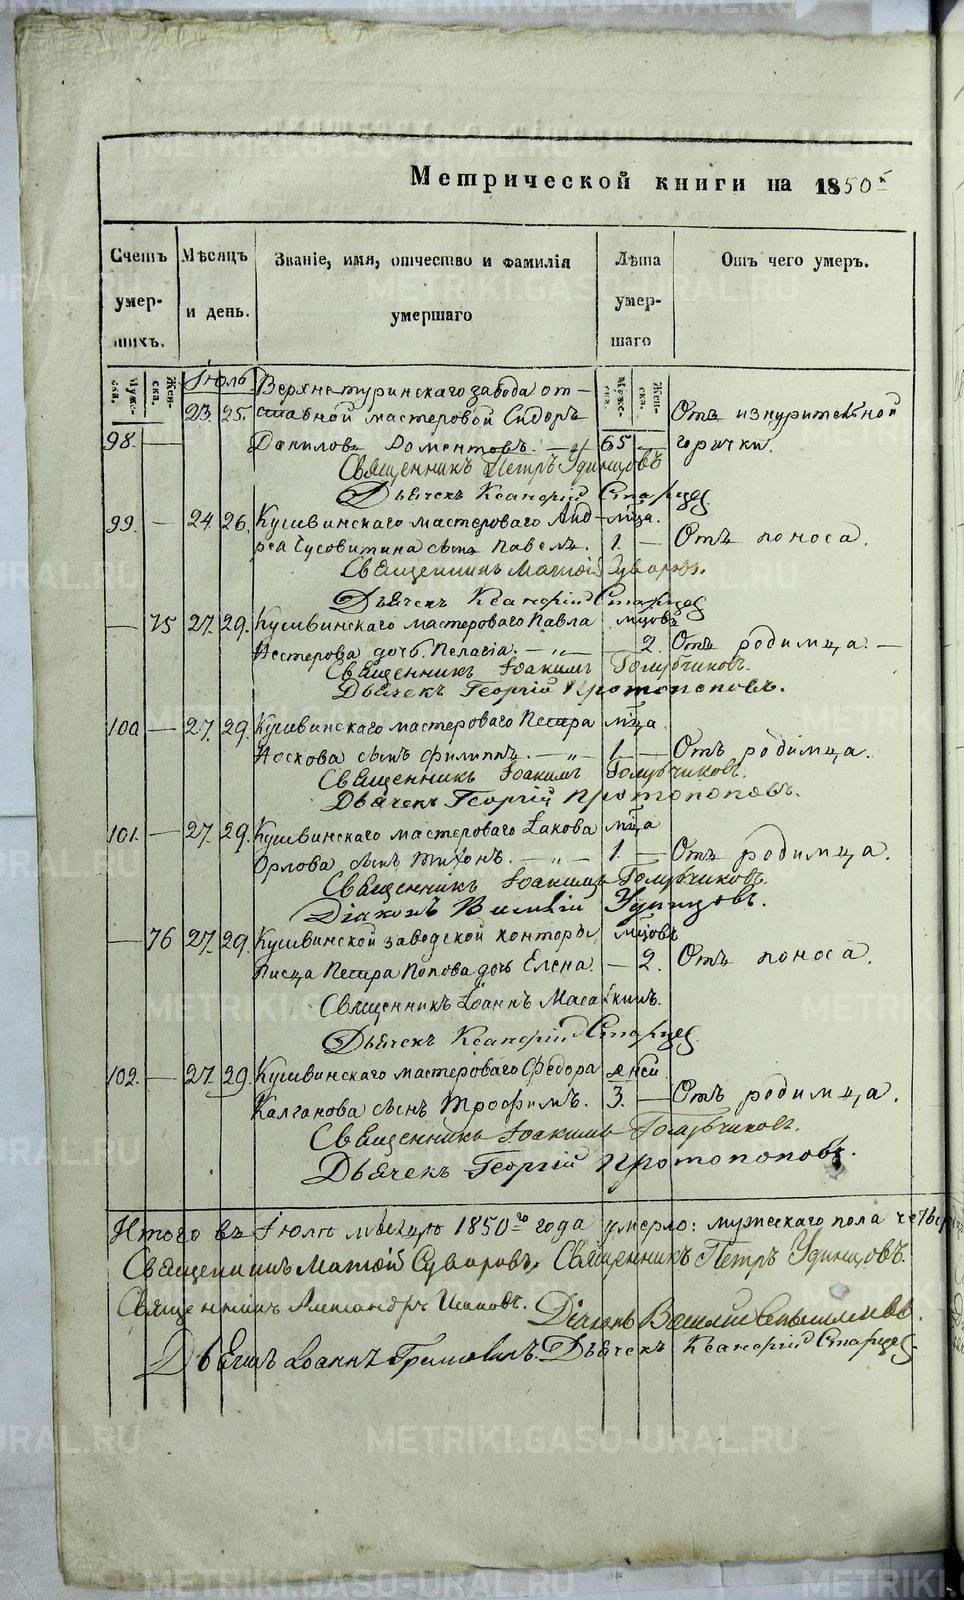 Метрической книги на 1850 г.
Счетъ умер-шихъ.
Мѣсяцъ и день.
Званіе, имя, отчество и фамилія умершаго
Лѣта умер-шаго
Отъ чего умеръ.
Муже-ска.
Жен-ска.
Муже-ска.
Жен-ска.
Іюль
98. — 23. 25. Верхнетуринскаго завода от-
ставной мастеровой Сидоръ
Даниловъ Доментовъ. — „ 65 — Отъ изнурительной
горячки.
Священникъ Петръ Удинцовъ
Дьячекъ Ксанфрій Старцев.
99. — 24. 26. Кушвинскаго мастероваго Анд- мца.
рея Чусовитина сынъ Павелъ. 1. — Отъ поноса.
Священникъ Матѳій Суворовъ.
Дьячекъ Ксанфрій Старцев
— 75 27. 29. Кушвинскаго мастероваго Павла мцовъ
Нестерова дочь Пелагія. — „ — 2. Отъ родимца. —
Священникъ Іоакимъ Голубчиковъ.
Дьячекъ Георгій Протопоповъ.
100 — 27. 29. Кушвинскаго мастероваго Петра мца.
Носкова сынъ Филиппъ. — „ 1. — Отъ родимца.
Священникъ Іоакимъ Голубчиковъ.
Дьячекъ Георгій Протопоповъ.
101. — 27. 29. Кушвинскаго мастероваго Іакова мца
Орлова сынъ Тихонъ. — „ — 1. — Отъ родимца.
Священникъ Іоакимъ Голубчиковъ.
Діаконъ Василій Удинцовъ.
— 76 27. 29. Кушвинской заводской конторы мцовъ
писца Петра Попова дочь Елена. — 2. Отъ поноса.
Священникъ Іоаннъ
Дьячекъ Ксанфрій Старцев.
102. — 27. 29. Кушвинскаго мастероваго Ѳедора дней
Калганова сынъ Трофимъ. 3. — Отъ родимца.
Священникъ Іоакимъ Голубчиковъ.
Дьячекъ Георгій Протопоповъ.
Итого въ Іюлѣ мѣсяцѣ 1850го года умерло: мужескаго пола
Священникъ Матѳій Суворовъ. Священникъ Петръ Удинцовъ.
Священникъ Александръ Діаконъ Василій
Іоаннъ Дьячекъ Ксанфрій Старцев.
METRIKI.GASO-URAL.RU